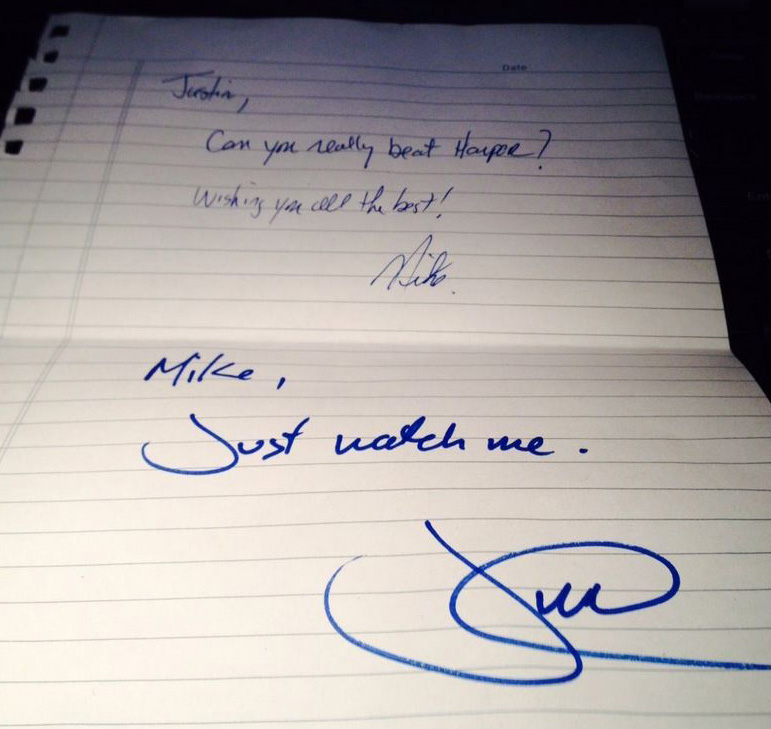 Date
Justin,
Can you really beat Harper?
Wishing you all the best!
Mike.
Mike,
Just watch me.